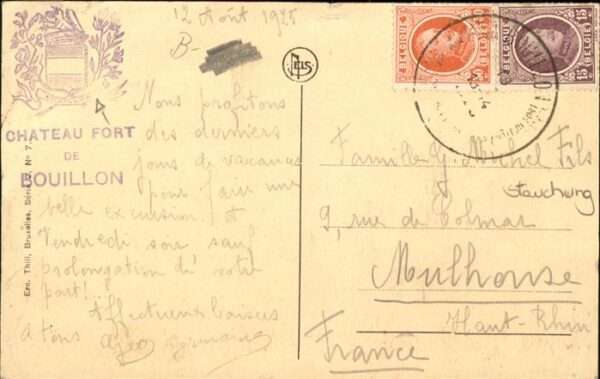 12 Août 1925
B-
CHATEAU FORT
DE
BOUILLON
Nous profitons
des derniers
jours de vacances
pour faire une
belle excursion et
Vendredi soir sauf
prolongation de votre
part!
Affectueux baisers
a tous
Ern. Thill, Bruxelles, Série N° 7
Nels
BELGIQUE
BELGIË
BELGIQUE
BELGIË
15 15
Famille G Michel Fils
9, rue de Colmar
Mulhouse
Haut-Rhin
France